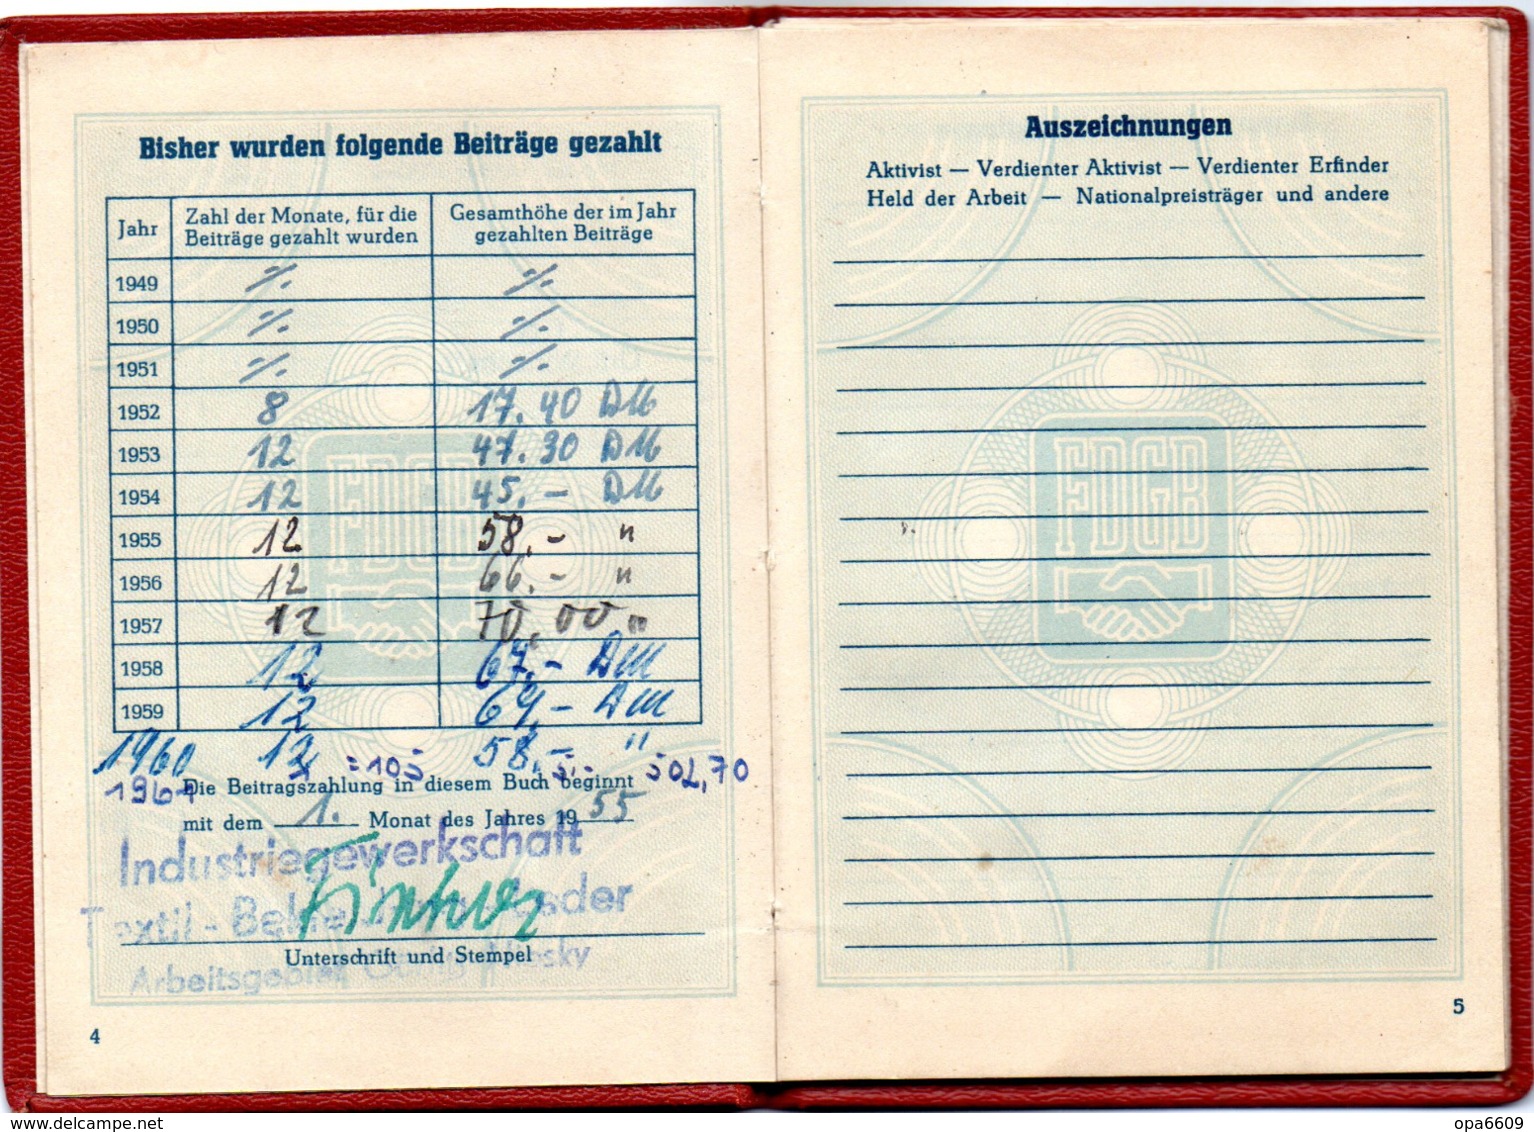 Bisher wurden folgende Beiträge gezahlt
Jahr Zahl der Monate, für die Beiträge gezahlt wurden Gesamthöhe der im Jahr gezahlten Beiträge
1949 -/- -/-
1950 -/- -/-
1951 -/- -/-
1952 8 17.40 DM
1953 12 47.30 DM
1954 12 45.- DM
1955 12 58,- "
1956 12 66,- "
1957 12 70,00 "
1958 12 67,- DM
1959 12 69,- DM
1960 12 58,- "
1961 =105 5,- 502,70
Die Beitragszahlung in diesem Buch beginnt
mit dem 1. Monat des Jahres 1955
Industriegewerkschaft
Textil - Leder
Unterschrift und Stempel
Arbeitsgebiet Niesky
4
Auszeichnungen
Aktivist — Verdienter Aktivist — Verdienter Erfinder
Held der Arbeit — Nationalpreisträger und andere
FDGB
FDGB
5
delcampe.net
opa6609